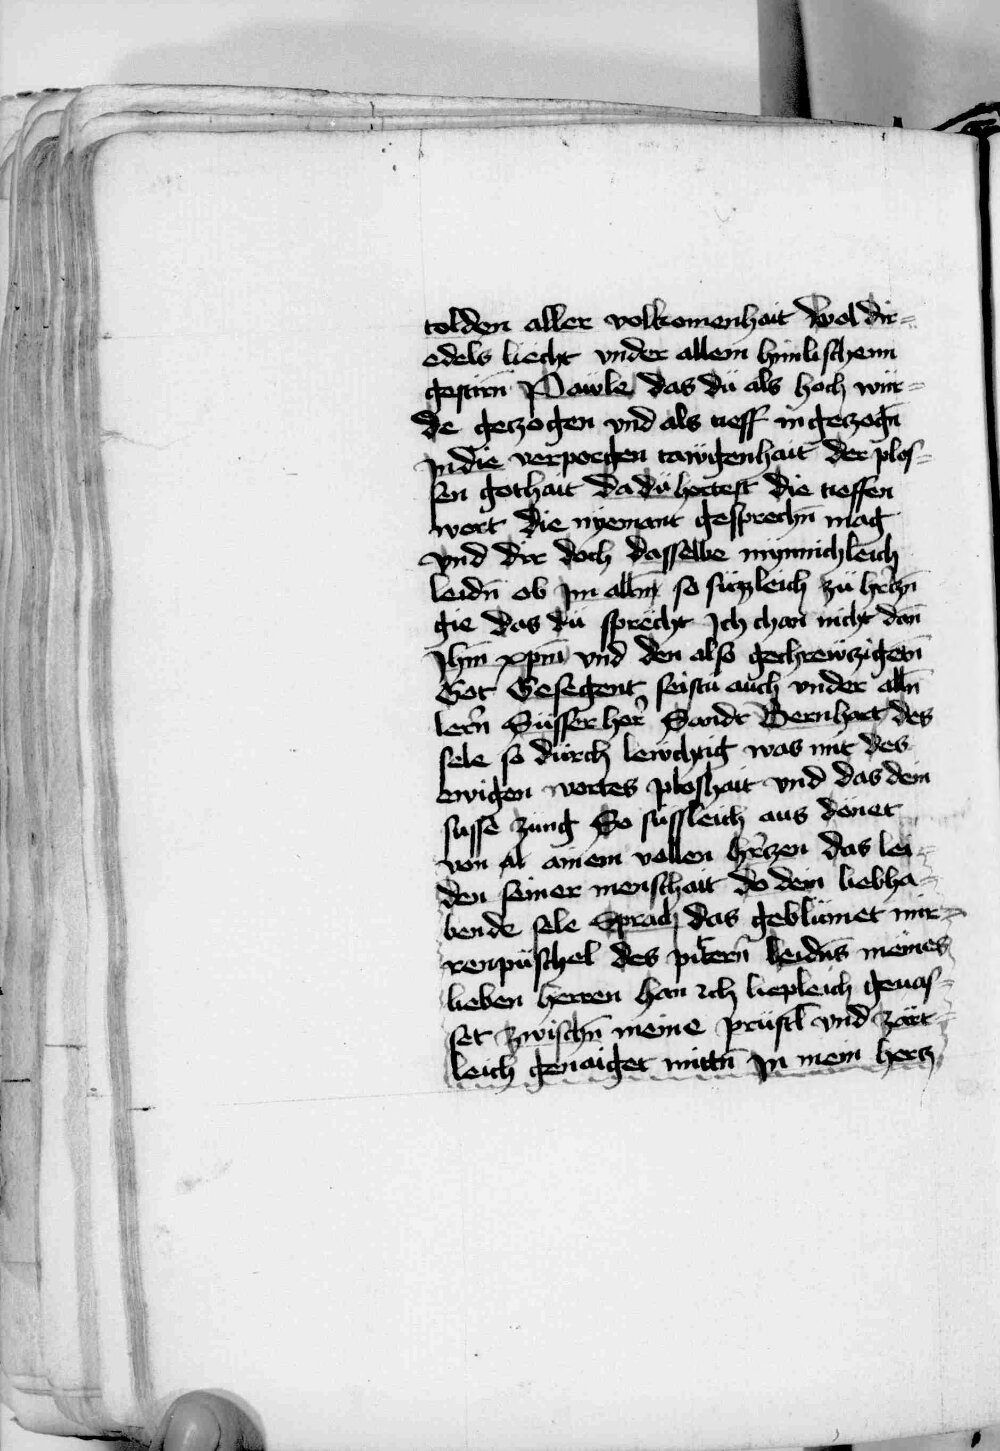 tolden aller volkomenhait Wol dir=
edels liecht vnder allem himlischenn
gestirn̄ Pawle das dü als hoch wür=
de geczogen vnd als tieff in geczogn̄
Jn die verporgen tawgenhait der plos=
sen gothait da dü hortest die tieffen
wort die nyemant gesprechn̄ mag
vnd dir doch dasselbe mynnichleich
leidn̄ ob Jm alln̄ so süzzleich zü herczn̄
gie das dü sprecht Jch chan nicht dan̄
Jhm̄ xpm̄ vnd den also gechrewczigten̄
Got Gesegent seistu auch vnder alln̄
lern̄ Süsser her̄ Sandt Bernhart des
sele so dürch lewchtig was mit des
ewigen wortes ploshait vnd das dein
susse zung So süssleich aus dönet
von ainem vollen herczen das lei=
den seiner menschait do dein liebha=
bende sele Sprach das geblümet mir=
renpüschel des pittern̄ leidn̄s meines
lieben herren han ich liepleich gevas=
set zwischn̄ meine prüstl vnd zärt=
leich genaiget mittn̄ Jn mein hercz